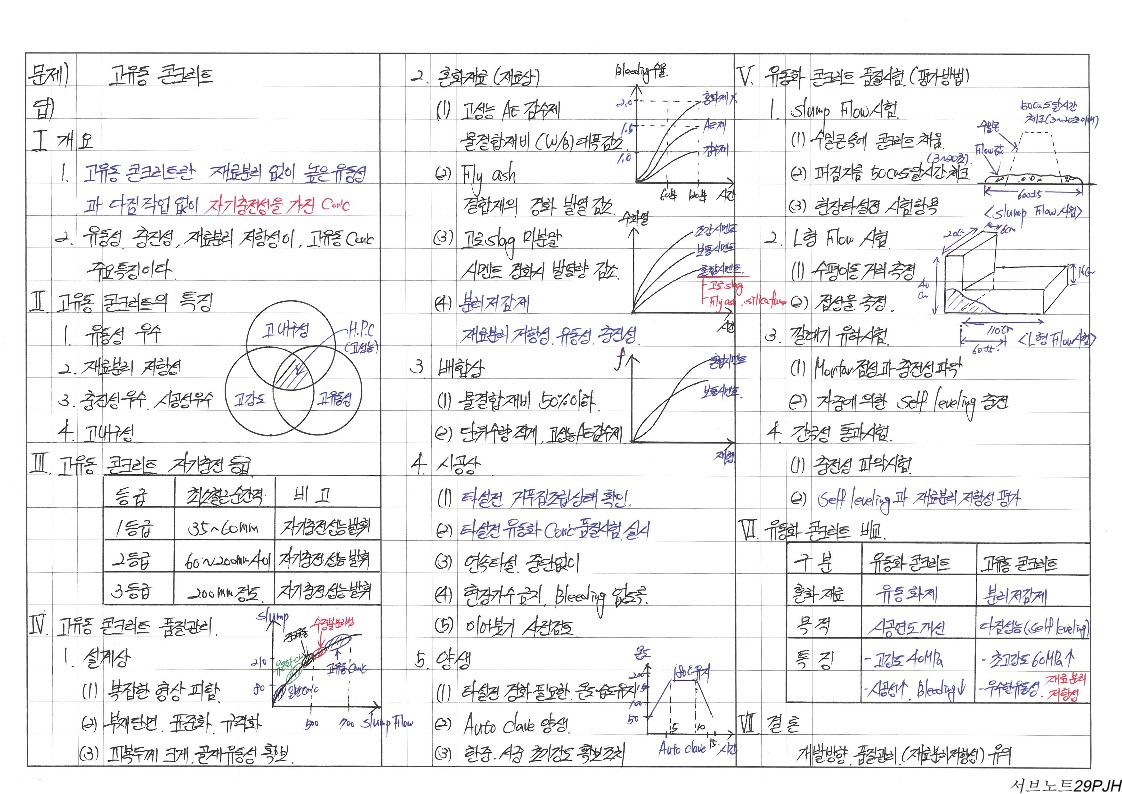 문제) 고유동 콘크리트
답)
Ⅰ 개요
1. 고유동 콘크리트란 재료분리 없이 높은 유동성
과 다짐작업 없이 자기충전성을 가진 Conc
2. 유동성, 충전성, 재료분리 저항성이, 고유동 Conc
주요특징이다.
Ⅱ 고유동 콘크리트의 특징
1. 유동성 우수
2. 재료분리 저항성
3. 충전성우수, 시공성우수
4. 고내구성
고내구성
고강도
고유동성
H.P.C
(고성능)
Ⅲ 고유동 콘크리트 자기충전 등급
등급 최소철근순간격 비고
1등급 35~60mm 자기충전성능발휘
2등급 60~200mm사이 자기충전성능발휘
3등급 200mm정도 자기충전성능발휘
Ⅳ 고유동 콘크리트 품질관리
1. 설계상
(1) 복잡한 형상 피함
(2) 부재단면 표준화, 규격화
(3) 피복두께 크게, 골재유동성 확보
slump
210
80
일반Conc
고유동Conc
500 700 slump Flow
2. 혼화재료 (재료상)
(1) 고성능 AE 감수제
물결합재비 (W/B) 대폭감소
(2) Fly ash
결합재의 경화 발열 감소
(3) 고로slag 미분말
시멘트 경화시 발열량 감소
(4) 분리저감제
재료분리 저항성, 유동성, 충전성
Bleeding수량
2.0
1.5
1.0
혼화제 X
AE제
감수제
60분 120분 시간
수화열
조강시멘트
보통시멘트
혼합시멘트
고로slag
Fly ash, silica fume
시간
3 배합상
(1) 물결합재비 50%이하
(2) 단위수량 적게, 고성능AE감수제
f
혼합시멘트
보통시멘트
재령
4. 시공상
(1) 타설전 거푸집조립상태 확인
(2) 타설전 유동화 Conc 품질시험 실시
(3) 연속타설, 중단없이
(4) 현장가수 금지, Bleeding 없도록
(5) 이어붓기 사전검토
5. 양생
(1) 타설전 경화 필요한 온·습도유지
(2) Auto clave 양생
(3) 한중, 서중 초기강도 확보조치
온도
180℃유지
50
5 10 15 시간
Auto clave
Ⅴ. 유동화 콘크리트 품질시험 (평가방법)
1. Slump Flow시험
(1) 수밀콘속에 콘크리트 채움
(3~20초)
(2) 퍼짐지름 50cm도달시간체크
(3) 현장타설전 시험항목
50cm도달시간
체크(3~20초이내)
수밀콘
Flow값
60±5
<slump Flow시험>
2. L형 Flow 시험
(1) 수평이동 거리 측정
(2) 점성을 측정
20cm
40
cm
110cm
60±5
<L형 Flow시험>
3. 깔대기 유하시험
(1) Mortar점성과 충전성파악
(2) 자중에 의한 self leveling 충전
4. 간극성 통과시험
(1) 충전성 파악시험
(2) Self leveling과 재료분리 저항성 평가
Ⅵ 유동화 콘크리트 비교
구분 유동화 콘크리트 고유동 콘크리트
혼화 재료 유동화제 분리저감제
목적 시공연도개선 다짐성능(self leveling)
특징 -고강도 40MPa -초고강도 60MPa↑
-시공성↑, Bleeding↓ -우수한유동성, 재료분리 저항성
Ⅶ 결론
개발방향, 품질관리(재료분리저항성) 유의
서브노트29PJH